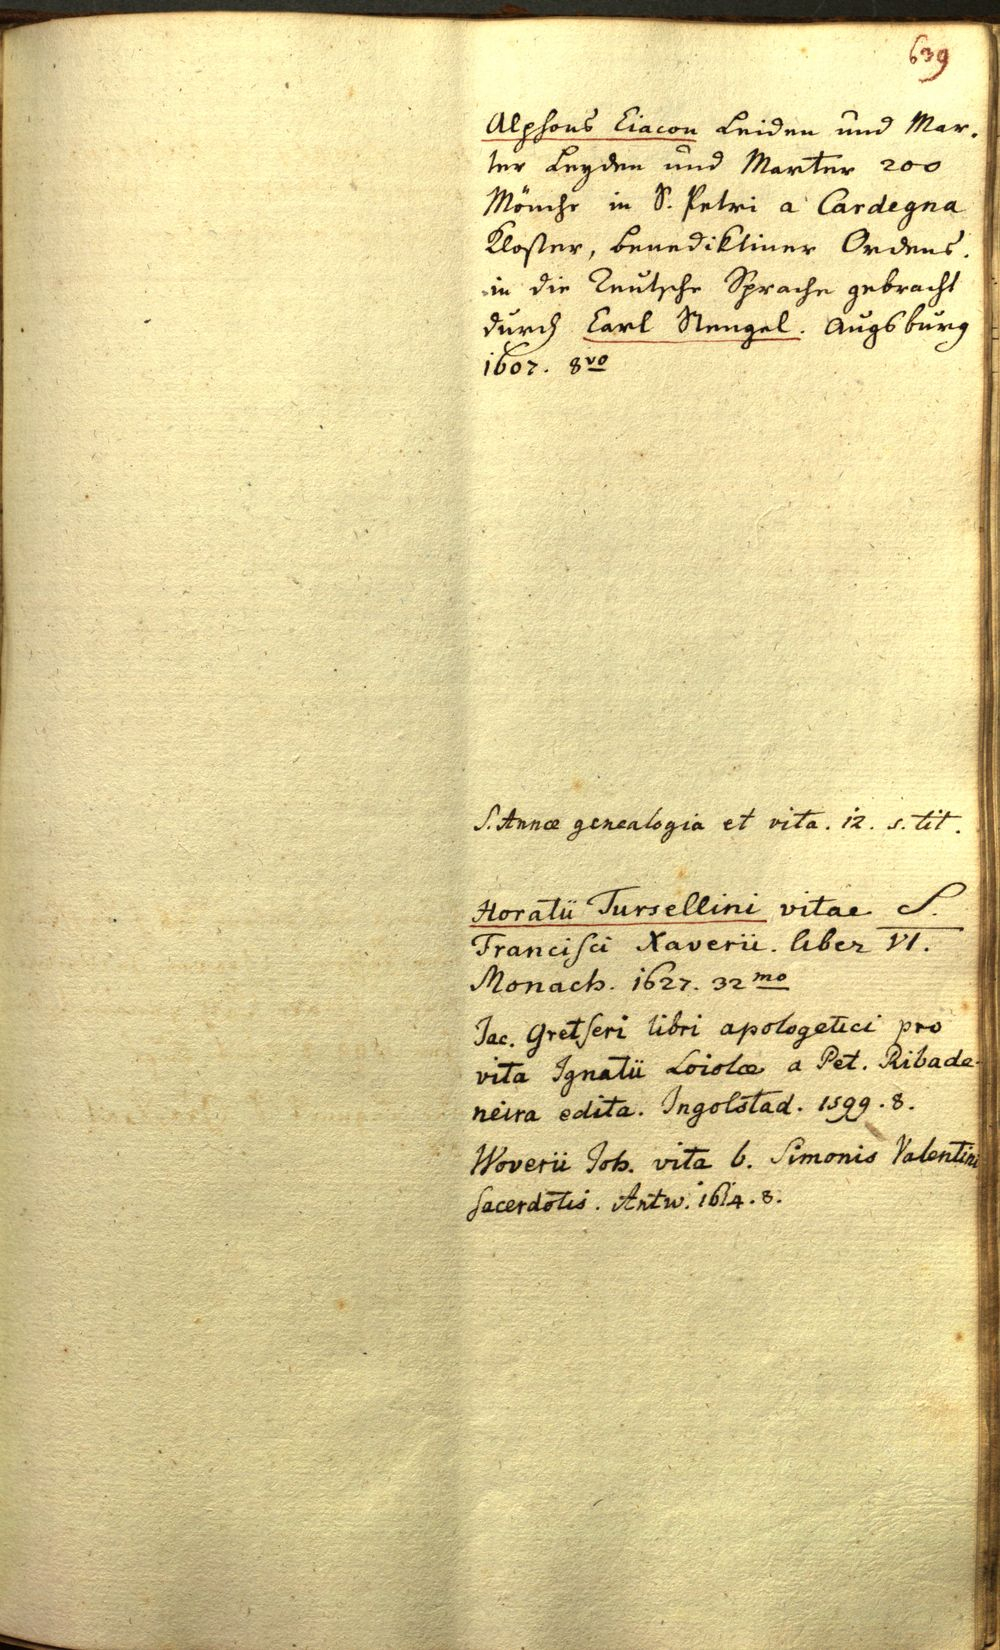 639
Alphons Ciacon Leiden und Mar-
ter Leyden und Marter 200
Mönche in S. Petri a Cardegna
Kloster, benediktiner Ordens.
in die Teutsche Sprache gebracht
durch Carl Stengel. Augsburg
1607. 8vo
S. Annæ genealogia et vita. 12. s. tit.
Horatii Tursellini vitae S.
Francisci Xaverii. liber VI.
Monach. 1627. 32mo
Jac. Gretseri libri apologetici pro
vita Ignatii Loiolæ a Pet. Ribade-
neira edita. Ingolstad. 1599. 8.
Woverii Joh. vita b. Simonis Valentini
sacerdotis. Antw. 1614. 8.